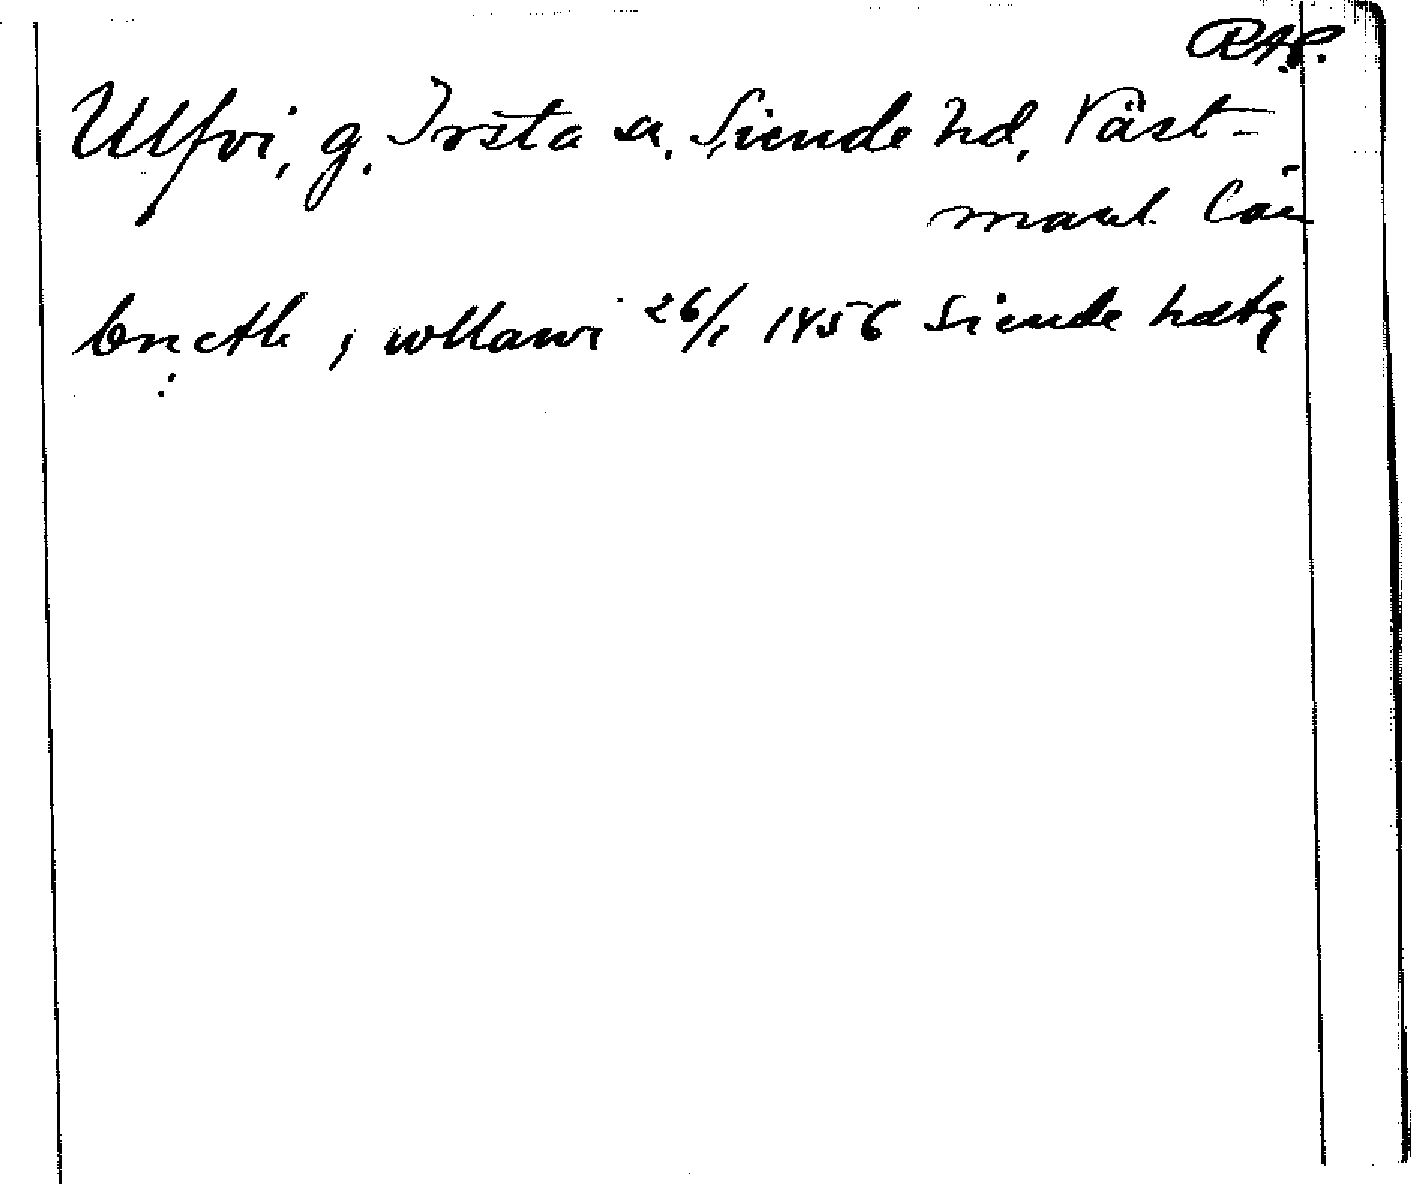 RAP.
Ulfvi, g. Irsta sn. Siende hd, Väst-
manl. län
bencth i wllawi 26/1 1456 Siende hdtg